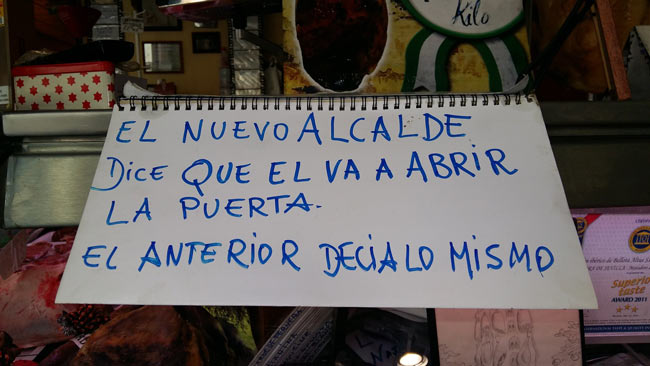 Kilo
EL NUEVO ALCALDE
DICE QUE EL VA A ABRIR
LA PUERTA.
EL ANTERIOR DECIA LO MISMO
Superior
taste
AWARD 2011